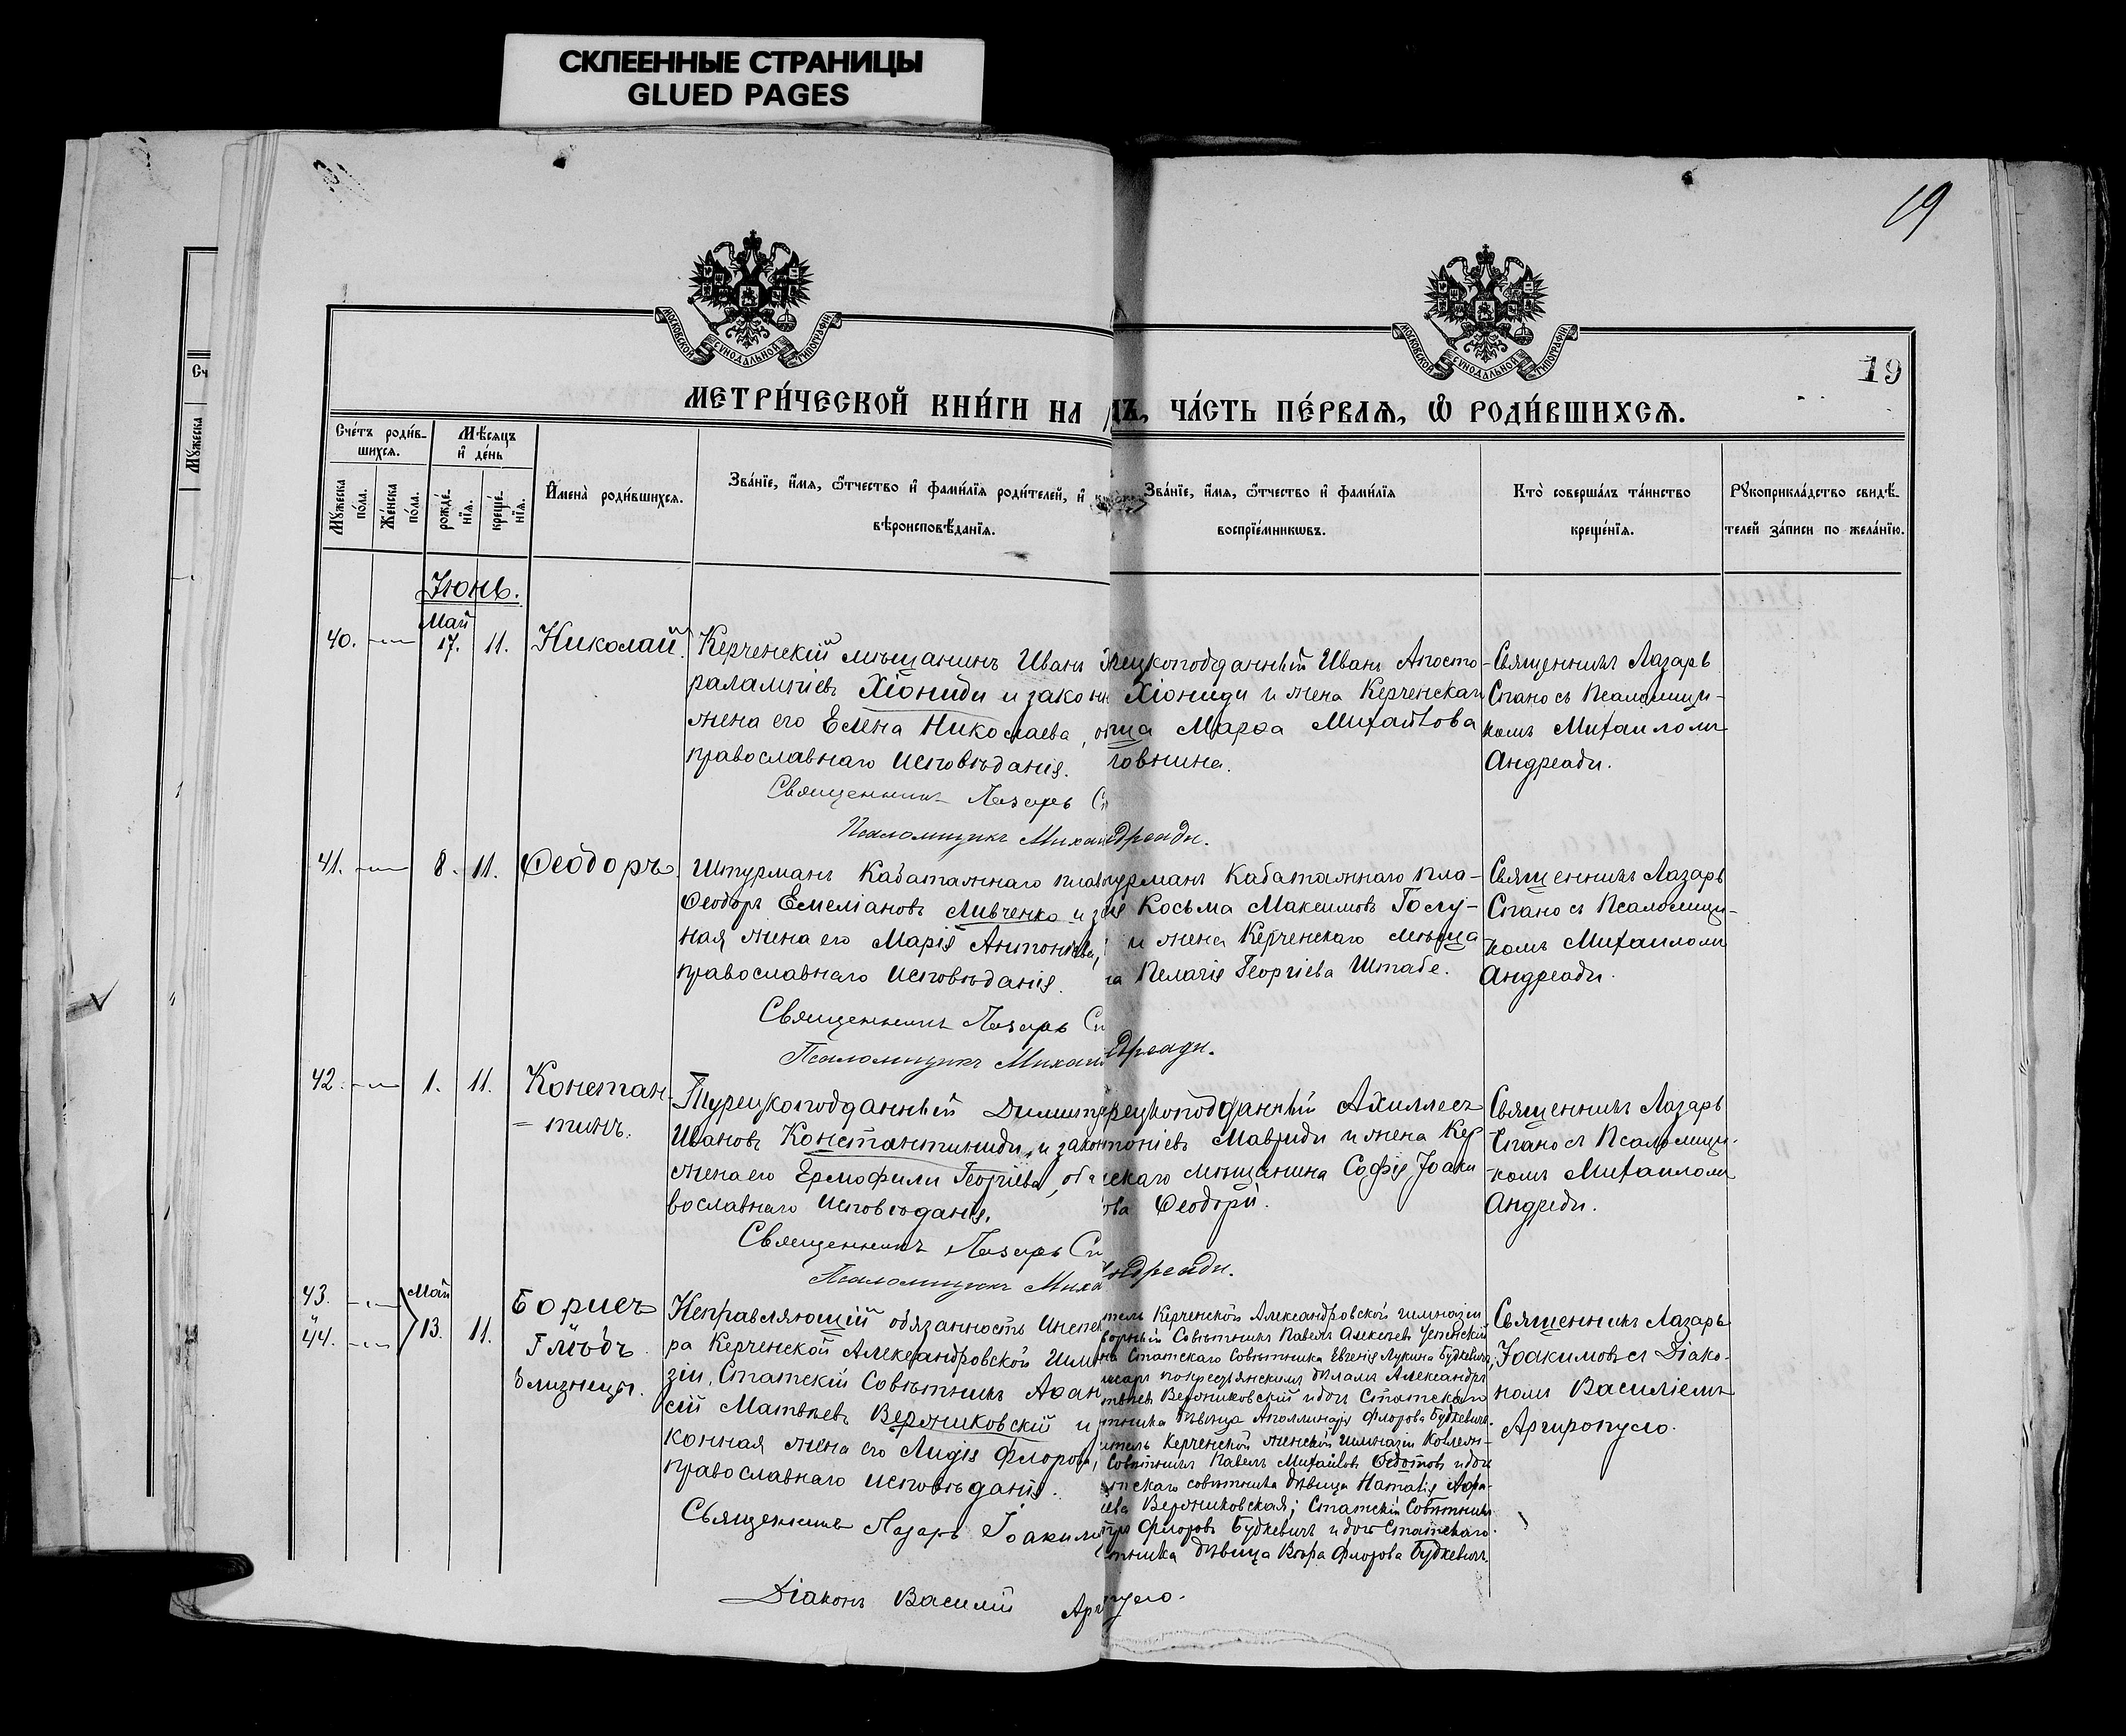 СКЛЕЕННЫЕ СТРАНИЦЫ
GLUED PAGES
19
МОСКОВСКОЙ СѴНОДАЛЬНОЙ ТИПОГРАФІИ
МОСКОВСКОЙ СѴНОДАЛЬНОЙ ТИПОГРАФІИ
19
МЕТРИ́ЧЕСКОЙ КНИ́ГИ НА
ДЪ, ЧА́СТЬ ПЕ́РВАѦ, Ѽ РОДИ́ВШИХСѦ.
Сч
Мꙋжеска
Сче́тъ роди́в-
шихсѧ.
Мꙋ́жеска по́ла.
Же́нска по́ла.
Мѣ́сѧцъ
и҆ де́нь
рожде́-
нїѧ.
креще́-
нїѧ.
И҆мена̀ роди́вшихсѧ.
Зва́нїе, и҆́мѧ, ѻ҆́тчество и҆ фами́лїѧ роди́телей, и҆
вѣроисповѣ́данїѧ.
Зва́нїе, и҆́мѧ, ѻ҆́тчество и҆ фами́лїѧ
воспрїе́мникѡвъ.
Кто̀ соверша́лъ та́инство
креще́нїѧ.
Рꙋкоприкла́дство свидѣ́-
телей за́писи по жела́нїю.
Іюнь.
40.
Май
17.
11.
Николай.
Керченскій мѣщанинъ Иванъ
ралампіевъ Хіониди и закон
жена его Елена Николаева, о
православнаго исповѣданія.
Священникъ Лазарь С
Псаломщикъ Михаи
ецкоподданный Иванъ Апосто-
Хіониди и жена Керченскаг
ща Марѳа Михайлова
ловнина.
дреади.
Священникъ Лазарь
Спано съ Псаломщи-
комъ Михаиломъ
Андреади.
41.
8.
11.
Ѳеодоръ.
Штурманъ Каботажнаго плав
Ѳеодоръ Емеліановъ Ливченко и з
ная жена его Марія Антоніева,
православнаго исповѣданія.
Священникъ Лазарь Сп
Псаломщикъ Михаи
урманъ Каботажнаго пла-
Косьма Максимовъ Голу-
и жена Керченскаго мѣща-
на Пелагія Георгіева Штабе.
дреади.
Священникъ Лазарь
Спано съ Псаломщи-
комъ Михаиломъ
Андреади.
42.
1.
11.
Констан-
тинъ.
Турецкоподданный Димит
Ивановъ Константиниди и закон
жена его Ермофили Георгіева, оба
вославнаго исповѣданія.
Священникъ Лазарь Сп
Псаломщикъ Миха
рецкоподданный Ахиллесъ
тоніевъ Мавриди и жена Кер
скаго мѣщанина Софія Іоаки
ова Ѳеодори.
ндреади.
Священникъ Лазарь
Спано съ Псаломщи-
комъ Михаиломъ
Андреди.
43.
и
44.
Май
13.
11.
Борисъ
Глѣбъ
близнецы.
Исправляющій обязанность Инспек
ра Керченской Александровской Гимн
зіи, Статскій Совѣтникъ Аѳан
сій Матвѣевъ Вержиковскій и з
конная жена его Лидія Флорова,
православнаго исповѣданія.
Священникъ Лазарь Іоаким
Діаконъ Василій Арг
тель Керченской Александровской гимназіи
ворный Совѣтникъ Павелъ Алексѣевъ Успенскій
на Статскаго Совѣтника Евгенія Лукина Будкевичъ,
иссаръ по крестьянскимъ дѣламъ Александръ
твѣевъ Вержиковскій и дочь Статскаго
тника дѣвица Аполлинарія Флорова Будкевичъ.
итель Керченской женской Гимназіи Коллеж-
Совѣтникъ Павелъ Михайловъ Ѳедотовъ и дочь
атскаго совѣтника дѣвица Наталія Аѳа-
іева Вержиковская; Статскій Совѣтникъ
Флоровъ Будкевичъ и дочь Статскаго
тника дѣвица Вѣра Флорова Будкевичъ.
пуло.
Священникъ Лазарь
Іоакимовъ съ Діако-
номъ Василіемъ
Аргиропуло.